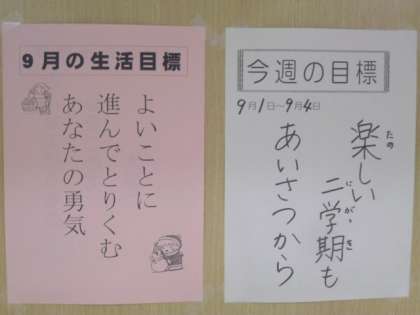 9月の生活目標
よいことに
進んでとりくむ
あなたの勇気
今週の目標
9月1日～9月4日
楽しい
たの
二学期も
にがっき
あいさつから